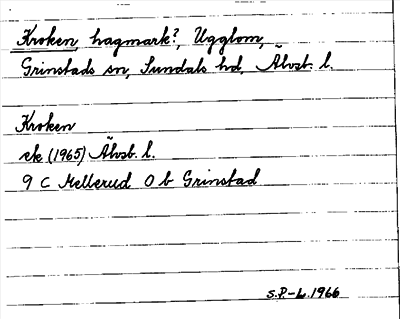 Kroken, hagmark?, Ugglom,
Grinstads sn, Sundals hd, Älvsb. l.
Kroken
ek (1965) Älvsb. l.
9 C Mellerud 0 b Grinstad
S.P.-L. 1966